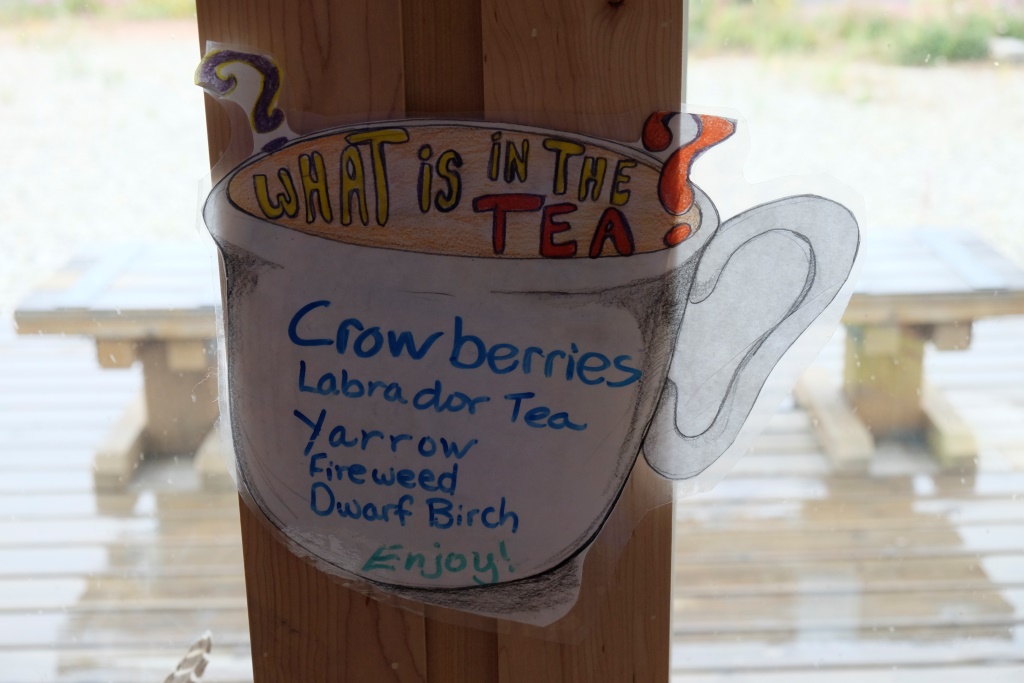 ? WHAT IS IN THE
TEA?
Crowberries
Labrador Tea
Yarrow
Fireweed
Dwarf Birch
Enjoy!